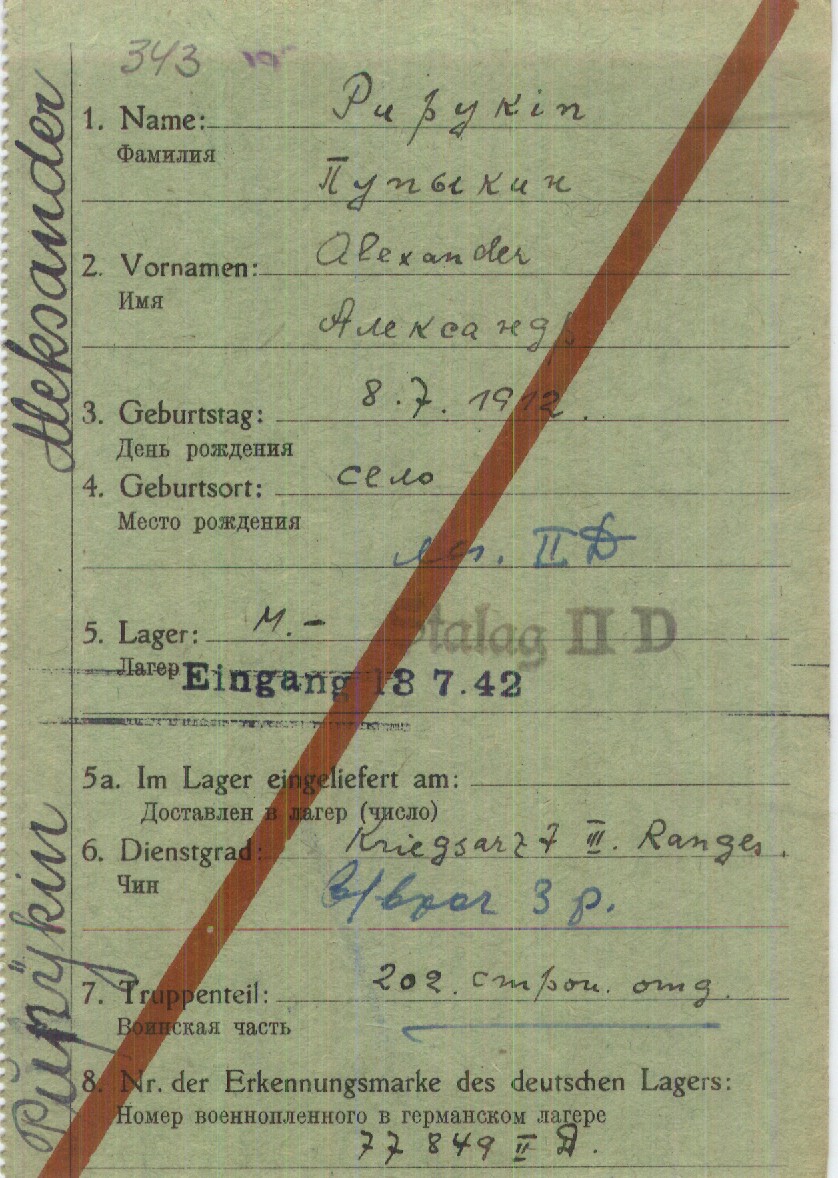 343
1. Name: Pupykin
Фамилия
Пупыкин
2. Vornamen: Alexander
Имя
Александр
3. Geburtstag: 8.7.1912.
День рождения
4. Geburtsort: село
Место рождения
II D
5. Lager: М.- Stalag II D
Лагер Eingang 18 7.42
5a. Im Lager eingeliefert am:
Доставлен в лагер (число)
6. Dienstgrad: Kriegsarzt III. Ranges.
Чин
в/врач 3 р.
7. Truppenteil: 202. строи. отд.
Воинская часть
8. Nr. der Erkennungsmarke des deutschen Lagers:
Номер военнопленного в германском лагере
77849 II D.
Pupÿkin Aleksander